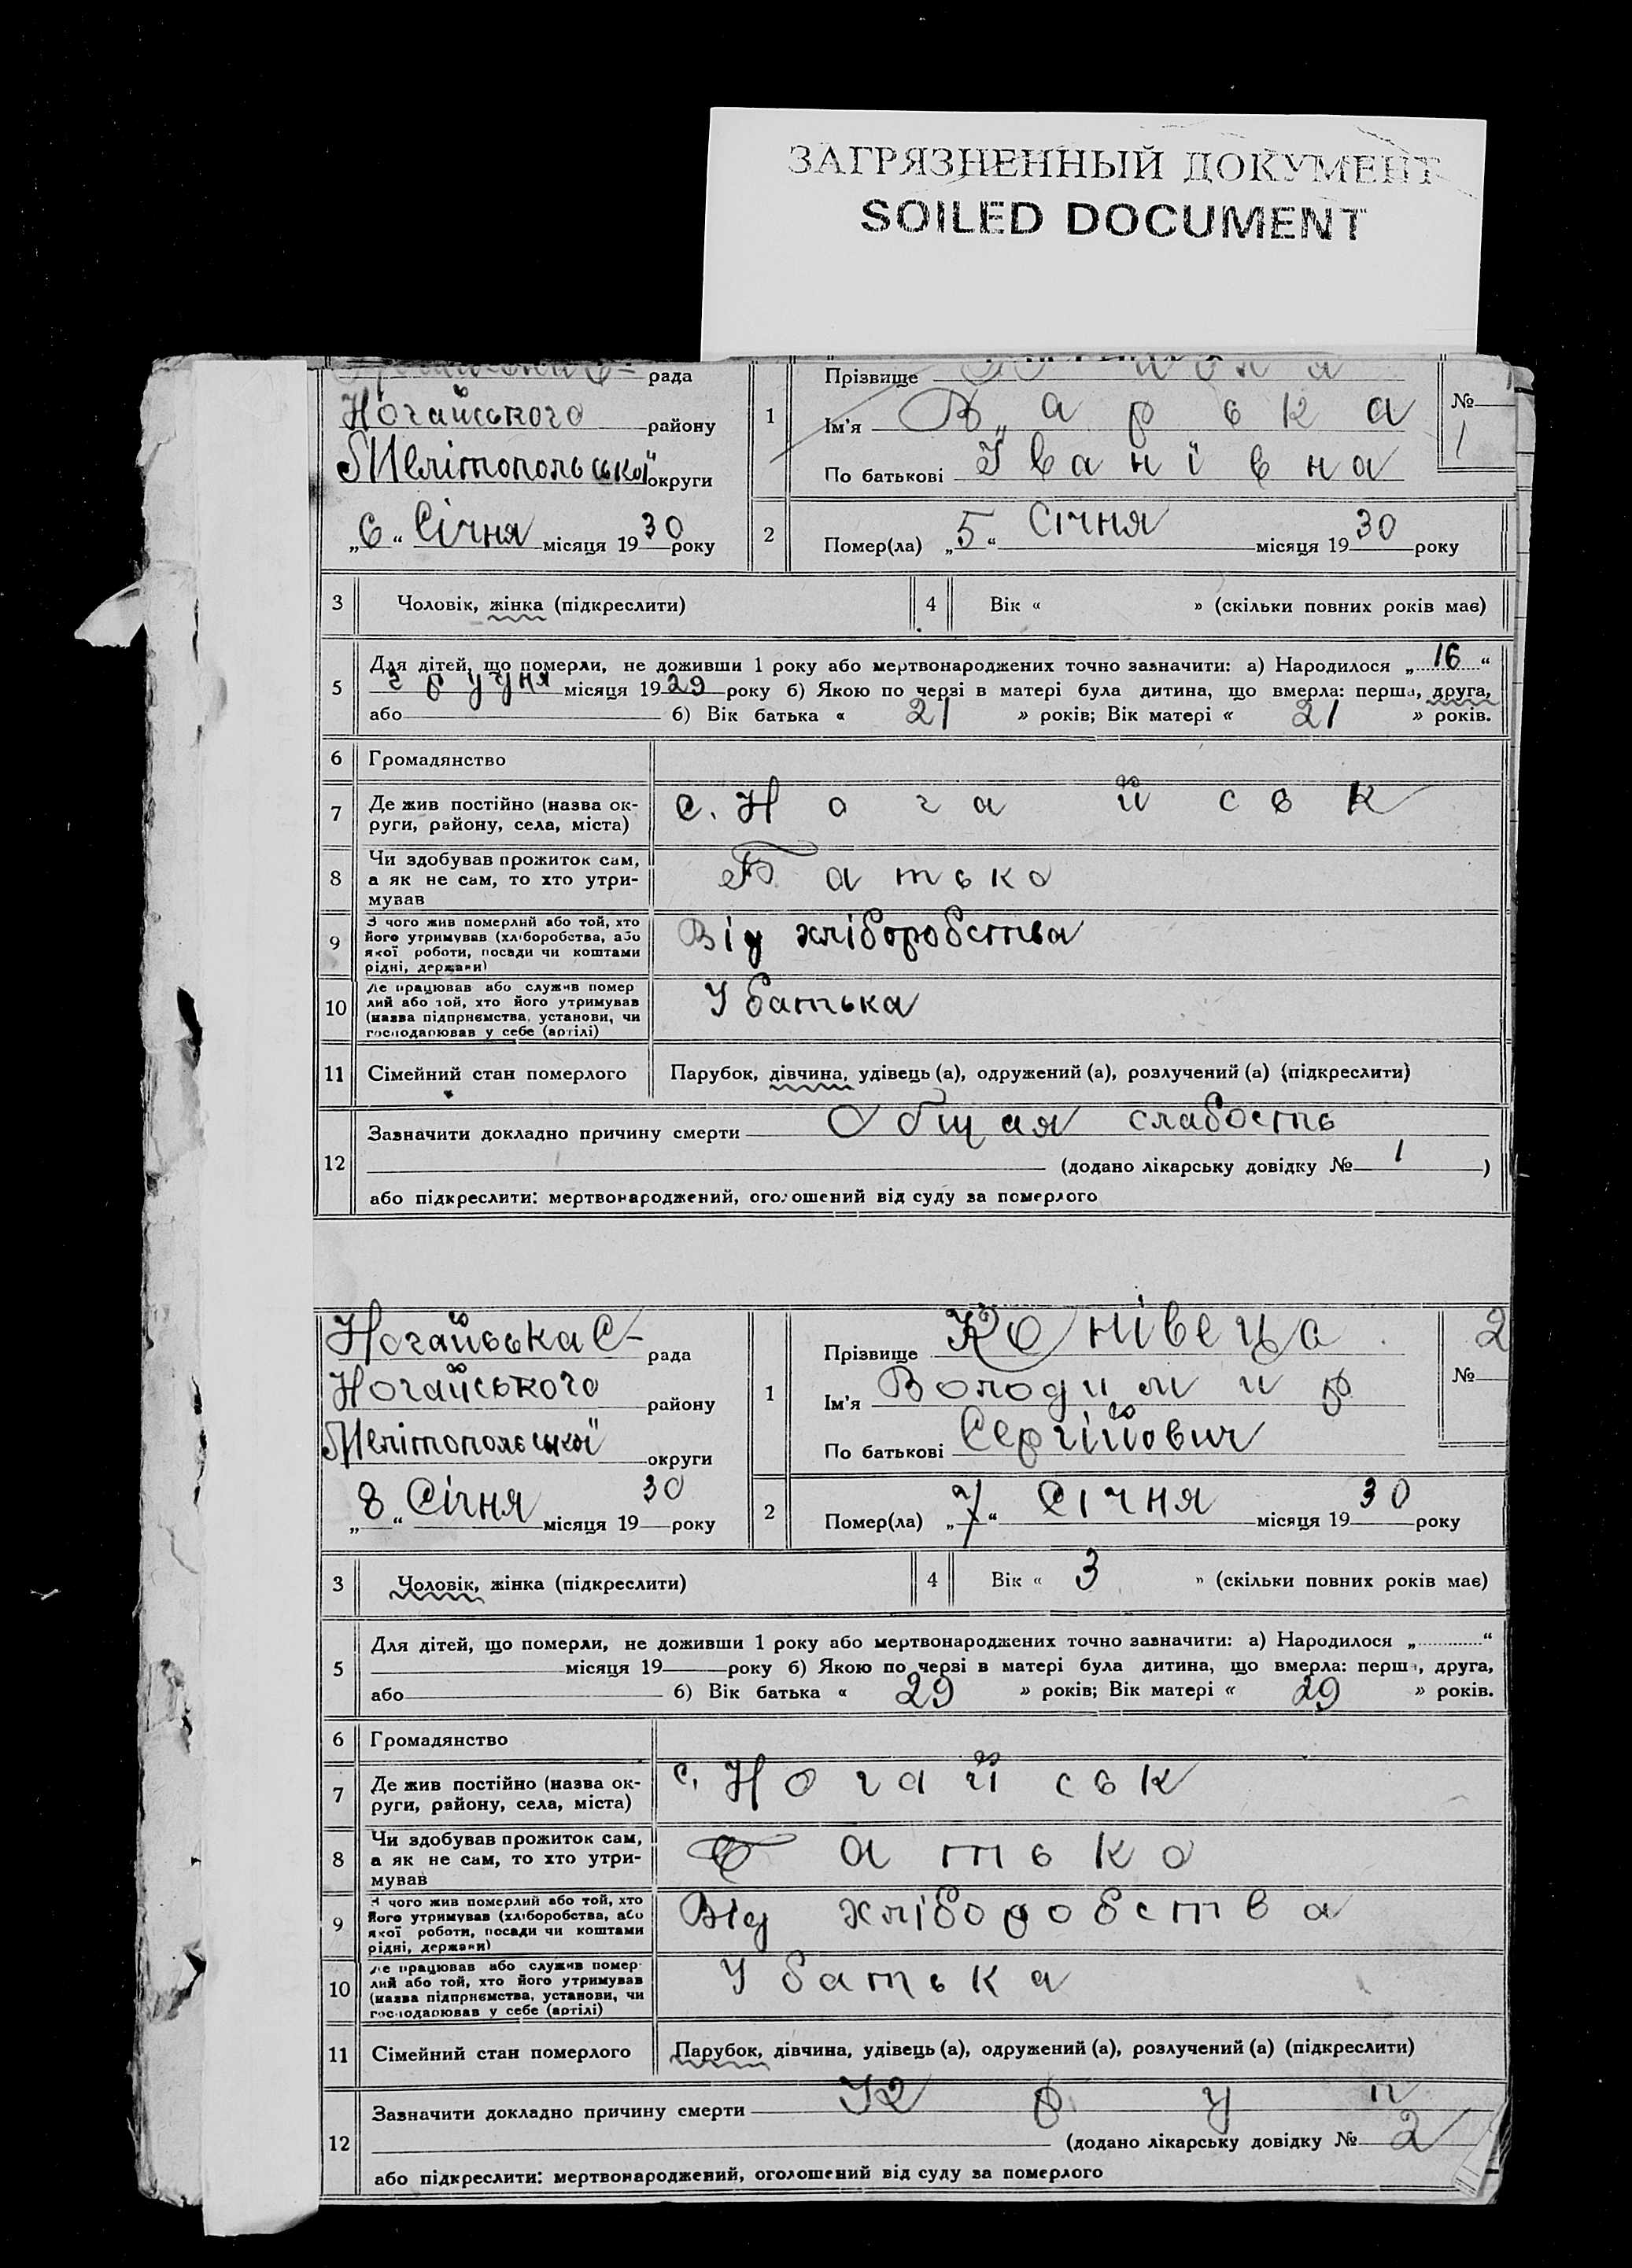 ЗАГРЯЗНЕННЫЙ ДОКУМЕНТ
SOILED DOCUMENT
рада
Ногайського району
Мелітопольської округи
„6“ Січня місяця 1930 року
1
Прізвище
Ім'я Варька
По батькові Іванівна
№ 1
2
Помер(ла) „5“ Січня місяця 1930 року
3 Чоловік, жінка (підкреслити)
4 Вік « » (скільки повних років має)
5 Для дітей, що померли, не доживши 1 року або мертвонароджених точно зазначити: а) Народилося „16“
грудня місяця 1929 року б) Якою по черзі в матері була дитина, що вмерла: перша, друга,
або б) Вік батька « 21 » років; Вік матері « 21 » років.
6 Громадянство
7 Де жив постійно (назва ок-
руги, району, села, міста)
с. Ногайськ
8 Чи здобував прожиток сам,
а як не сам, то хто утри-
мував
Батько
9 З чого жив померлий або той, хто
його утримував (хліборобства, або
якої роботи, посади чи коштами
рідні, держави)
Від хліборобства
10 Де працював або служив помер
лий або той, хто його утримував
(назва підприємства, установи, чи
господарював у себе (артілі)
У батька
11 Сімейний стан померлого Парубок, дівчина, удівець (а), одружений (а), розлучений (а) (підкреслити)
12 Зазначити докладно причину смерти Общая слабость
(додано лікарську довідку № 1 )
або підкреслити: мертвонароджений, оголошений від суду за померлого
Ногайська С- рада
Ногайського району
Мелітопольської округи
„8“ Січня місяця 1930 року
1
Прізвище Конівець
Ім'я Володимир
По батькові Сергійович
№ 2
2
Помер(ла) „7“ Січня місяця 1930 року
3 Чоловік, жінка (підкреслити)
4 Вік « 3 » (скільки повних років має)
5 Для дітей, що померли, не доживши 1 року або мертвонароджених точно зазначити: а) Народилося „ “
місяця 19 року б) Якою по черзі в матері була дитина, що вмерла: перша, друга,
або б) Вік батька « 29 » років; Вік матері « 29 » років.
6 Громадянство
7 Де жив постійно (назва ок-
руги, району, села, міста)
с. Ногайськ
8 Чи здобував прожиток сам,
а як не сам, то хто утри-
мував
Батько
9 З чого жив померлий або той, хто
його утримував (хліборобства, або
якої роботи, посади чи коштами
рідні, держави)
Від хліборобства
10 Де працював або служив помер-
лий або той, хто його утримував
(назва підприємства, установи, чи
господарював у себе (артілі)
У батька
11 Сімейний стан померлого Парубок, дівчина, удівець (а), одружений (а), розлучений (а) (підкреслити)
12 Зазначити докладно причину смерти
(додано лікарську довідку № 2
або підкреслити: мертвонароджений, оголошений від суду за померлого